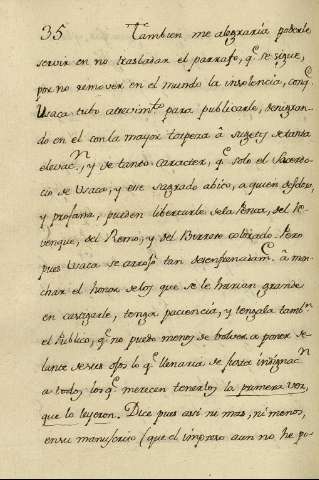 35 Tambien me alegraria poderle
servir en no trasladar el parrafo, q.e se sigue,
por no remover en el mundo la insolencia, conq.e
Usaca tubo atrevim.to para publicarle, denigran-
do en el con la mayor torpeza â sugetos de tanta
elevac.n, y de tanto caracter, q.e solo el Sacerdo-
cio de Usaca, y ese sagrado abito, a quien desdora,
y profana, pueden libertarle de la Penca, del Re-
venque, del Remo, y del Burrote colorado. Pero
pues Usaca se arrojó tan desenfrenadam.te â man-
char el honor de los que se le harian grande
en castigarle, tenga paciencia, y tengala tamb.n
el Publico, q.e no puedo menos de bolver a poner de-
lante de sus ojos lo q.e llenaria de justa indignac.n
a todos los q.e merecen tenerlos la primera vez,
que lo leyeron. Dice pues asi ni mas, ni menos,
en su manuscrito (que el impreso aun no he po-